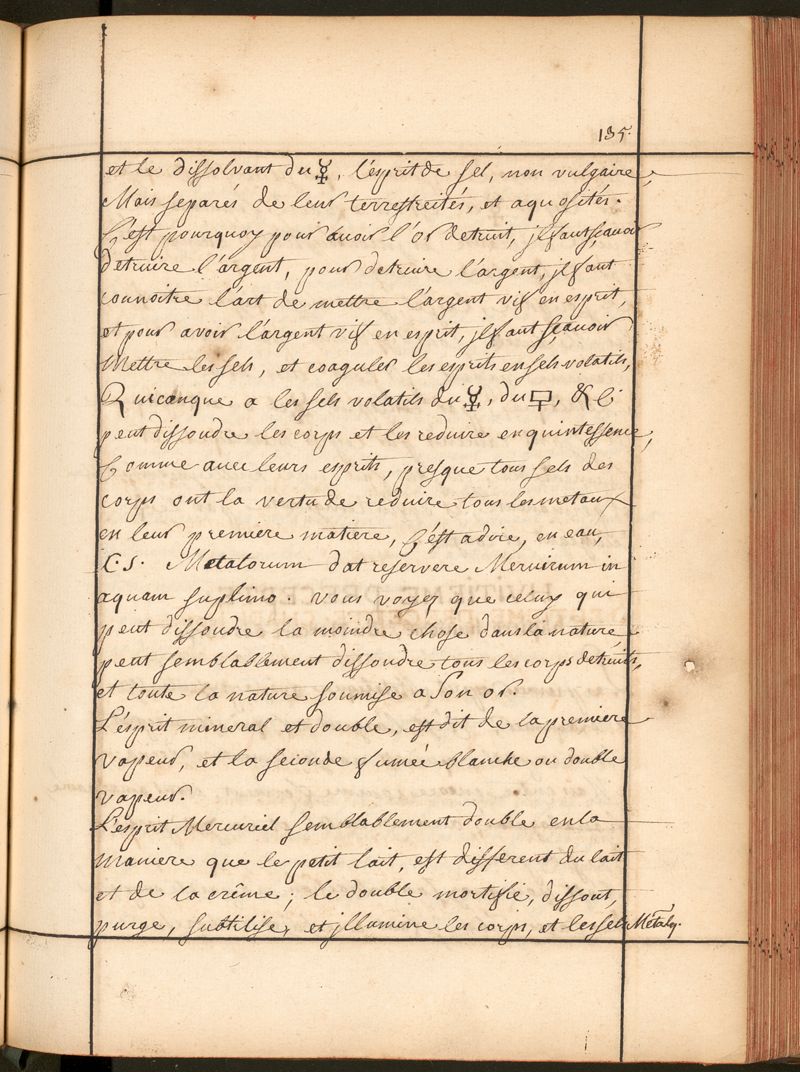 135.
et le dissolvant du ☿, l'esprit de sel, non vulgaire,
Mais separés de leur terrestreités, et aquosités.
C'est pourquoy pour avoir l'or detruit, jl faut sçavoir
detruire l'argent, pour detruire l'argent, jl faut
connoitre l'art de mettre l'argent vif en esprit,
et pour avoir l'argent vif en esprit, jl faut sçavoir
Mettre les sels, et coaguler les esprits en sels volatils,
Quiconque a les sels volatils du ☿, du 🜿, &c.
peut dissoudre les corps et les reduire en quintessence,
Comme avec leurs esprits, presque tous sels des
corps ont la vertu de reduire tous les metaux
en leur premiere matiere, C'est adire, en eau,
C.S. Metalorum dat reservere Mercurum in
aquam suplimo. Vous voyez que celuy qui
peut dissoudre la moindre chose dans la nature
peut semblablement dissoudre tous les corps detruits,
et toute la nature soumise a son or.
L'esprit mineral et double, est dit de la premiere
vapeur, et la seconde fumée blanche ou double
vapeur.
L'esprit Mercuriel semblablement double en la
maniere que le petit lait, est different du lait
et de la crême; le double mortifie, dissout,
purge, subtilise, et jllumine les corps, et les sels Métalq.